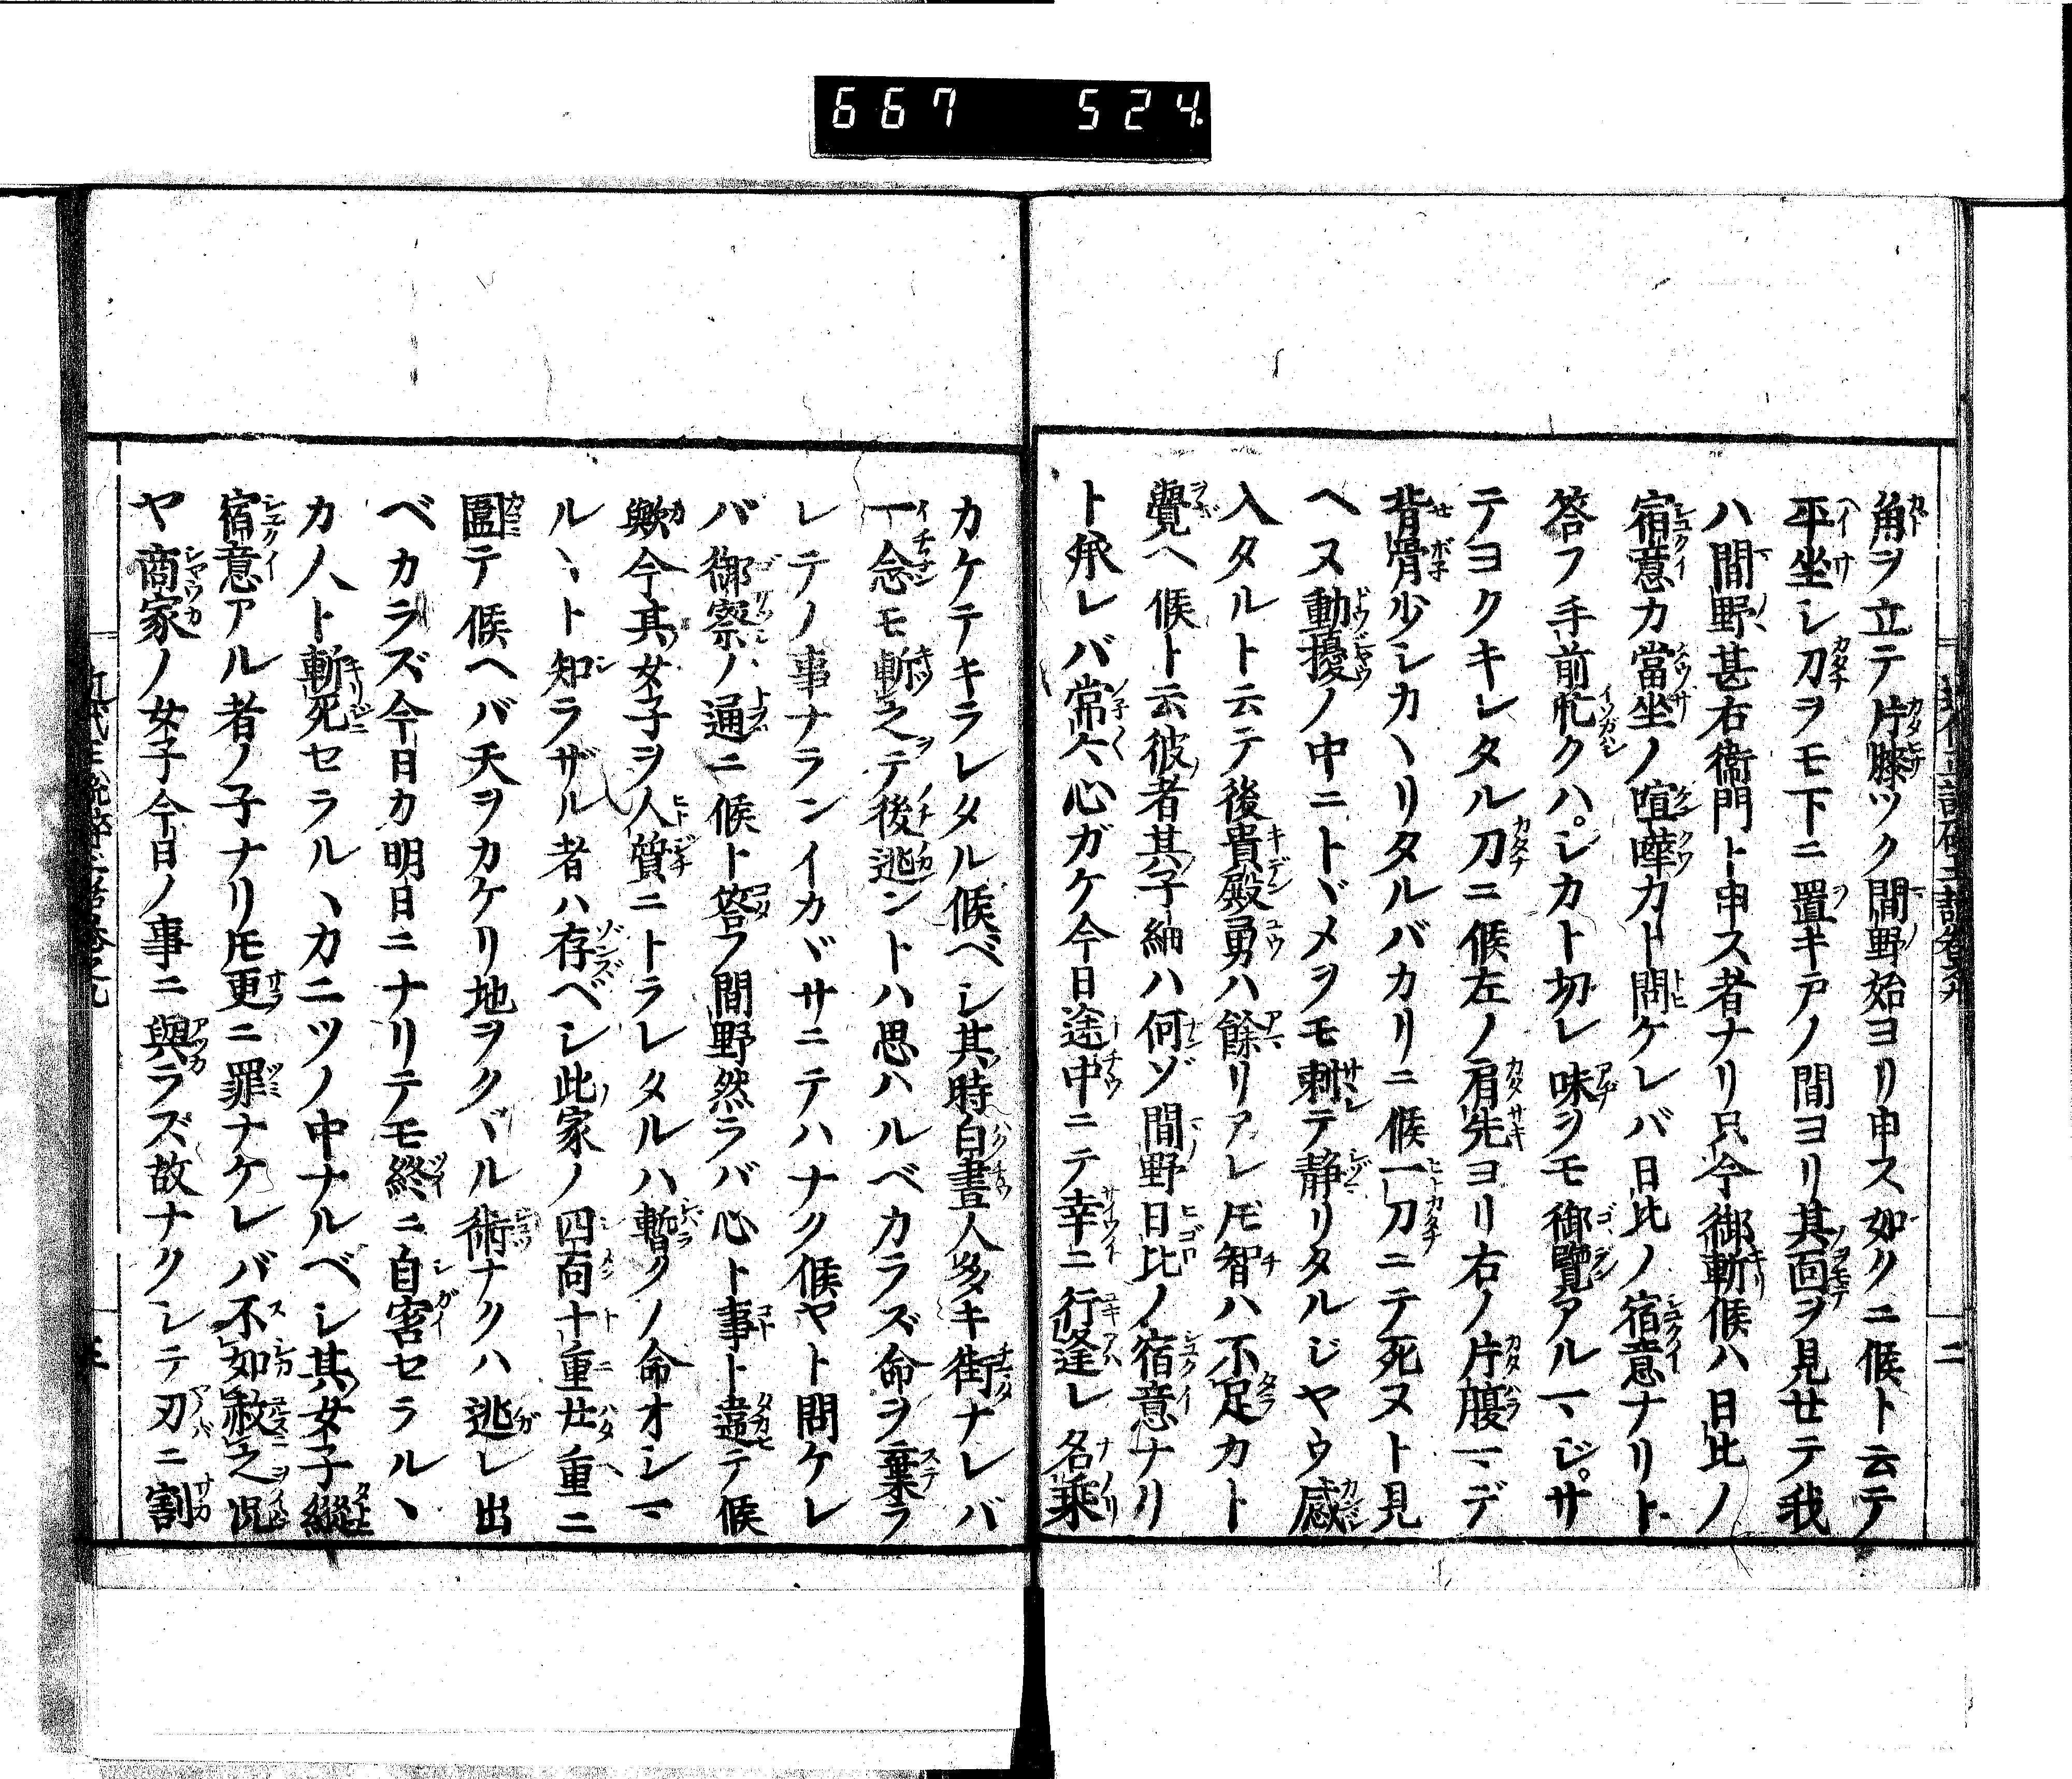 667 524
角ヲ立テ片膝ツク間野始ヨリ申ス如クニ候ト云テ
平坐シ刀ヲモ下ニ置キ戸ノ間ヨリ其面ヲ見セテ我
ハ間野甚右衛門ト申ス者ナリ只今御斬候ハ日比ノ
宿意カ當坐ノ喧嘩カト問ケレバ日比ノ宿意ナリト
答フ手前忙クハシカト切レ味ヲモ御覽アルマジサ
テヨクキレタル刀ニ候左ノ肩先ヨリ右ノ片腹マデ
背骨少シカヽリタルバカリニ候一刀ニテ死ヌト見
ヘヌ動擾ノ中ニトヾメヲモ刺テ静リタルジヤウ感
入タルト云テ後貴殿勇ハ餘リアレ𪜈智ハ不足カト
覺ヘ候ト云彼者其子細ハ何ゾ間野日比ノ宿意ナリ
ト承レバ常々心ガケ今日途中ニテ幸ニ行逢レ名乘
カケテキラレタル候ベシ其時白晝人多キ街ナレバ
一念モ斬之テ後逃ントハ思ハルベカラズ命ヲ棄ラ
レテノ事ナランイカヾサニテハナク候ヤト問ケレ
バ御察ノ通ニ候ト答フ間野然ラバ心ト事ト違テ候
歟今其女子ヲ人質ニトラレタルハ暫クノ命オシマ
ルヽト知ラザル者ハ存ベシ此家ノ四面十重廿重ニ
圍テ候ヘバ天ヲカケリ地ヲクヾル術ナクハ逃レ出
ベカラズ今日カ明日ニナリテモ終ニ自害セラルヽ
カ人ト斬死セラルヽカニツノ中ナルベシ其女子縱
宿意アル者ノ子ナリ𪜈更ニ罪ナケレバ不如赦之況
ヤ商家ノ女子今日ノ事ニ與ラズ故ナクシテ刃ニ割
二